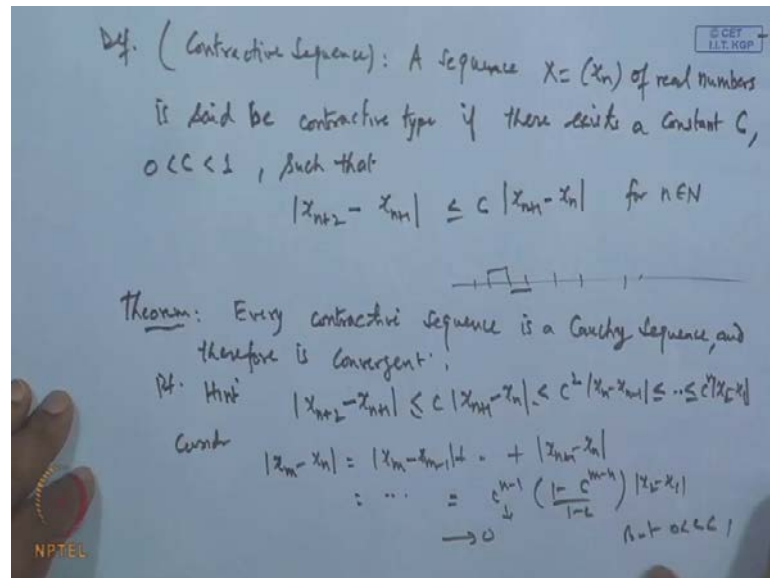 © CET
I.I.T. KGP
Def. (Contractive Sequence): A sequence X = (xₙ) of real numbers
is said be contractive type if there exists a constant C,
0 < C < 1, such that
|xₙ₊₂ - xₙ₊₁| ≤ C |xₙ₊₁ - xₙ| for n ∈ N
Theorem: Every contractive sequence is a Cauchy sequence, and
therefore is convergent.
Pf. Hint |xₙ₊₂ - xₙ₊₁| ≤ C |xₙ₊₁ - xₙ| ≤ C² |xₙ - xₙ₋₁| ≤ .. ≤ Cⁿ |x₂ - x₁|
Consider
|xₘ - xₙ| = |xₘ - xₘ₋₁| + .. + |xₙ₊₁ - xₙ|
= ... = Cⁿ⁻¹ (1 - Cᵐ⁻ⁿ / 1 - C) |x₂ - x₁|
↓
→ 0 But 0 < C < 1
NPTEL